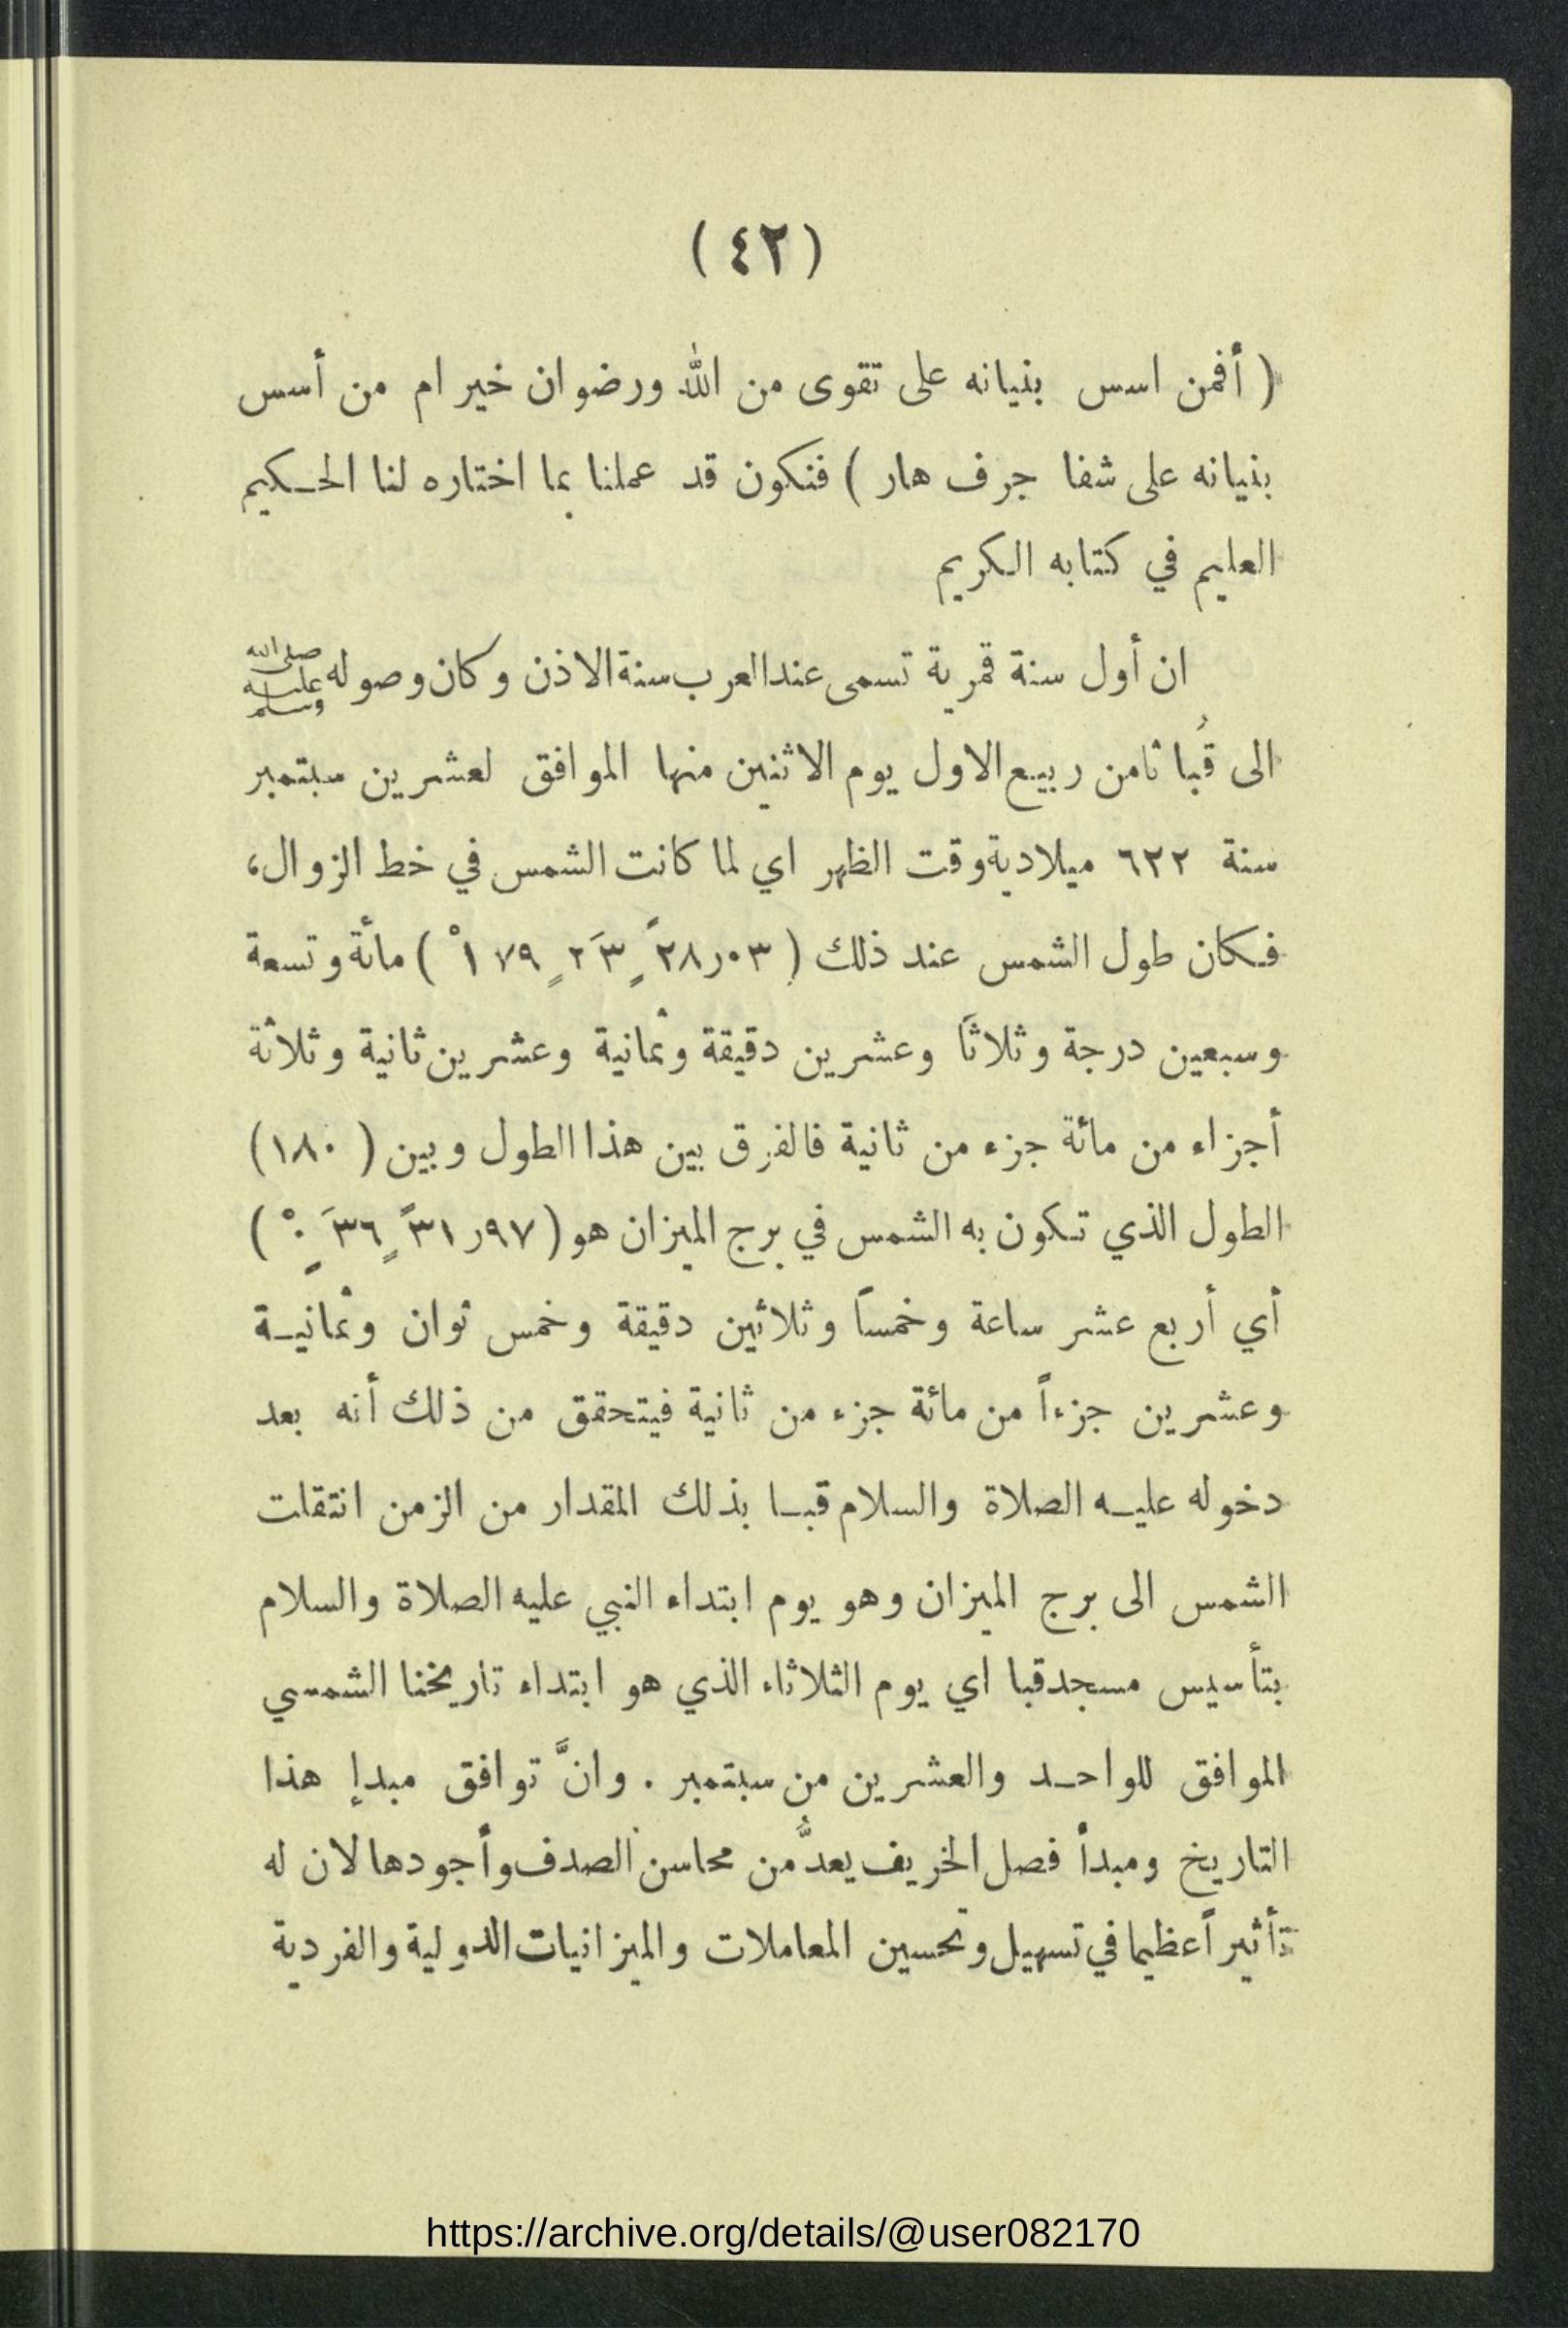 ( ٤٢ )
( أفمن اسس بنيانه على تقوى من الله ورضوان خير ام من أسس
بنيانه على شفا جرف هار ) فنكون قد عملنا بما اختاره لنا الحكيم
العليم في كتابه الكريم
ان أول سنة قمرية تسمى عند العرب سنة الاذن وكان وصوله صلى الله عليه وسلم
الى قُبا ثامن ربيع الاول يوم الاثنين منها الموافق لعشرين سبتمبر
سنة ٦٢٢ ميلادية وقت الظهر اي لما كانت الشمس في خط الزوال،
فكان طول الشمس عند ذلك ( ٠٣ر٢٨ً ٢٣َ ١٧٩ْ ) مائة وتسعة
وسبعين درجة وثلاثاً وعشرين دقيقة وثمانية وعشرين ثانية وثلاثة
أجزاء من مائة جزء من ثانية فالفرق بين هذا الطول وبين ( ١٨٠ )
الطول الذي تكون به الشمس في برج الميزان هو ( ٩٧ر٣١ً ٣٦َ ٠ْ )
أي أربع عشر ساعة وخمساً وثلاثين دقيقة وخمس ثوان وثمانية
وعشرين جزءاً من مائة جزء من ثانية فيتحقق من ذلك أنه بعد
دخوله عليه الصلاة والسلام قبا بذلك المقدار من الزمن انتقلت
الشمس الى برج الميزان وهو يوم ابتداء النبي عليه الصلاة والسلام
بتأسيس مسجد قبا اي يوم الثلاثاء الذي هو ابتداء تاريخنا الشمسي
الموافق للواحد والعشرين من سبتمبر . وانَّ توافق مبدإ هذا
التاريخ ومبدأ فصل الخريف يعدُّ من محاسن الصدف وأجودها لان له
تأثيراً عظيما في تسهيل وتحسين المعاملات والميزانيات الدولية والفردية
https://archive.org/details/@user082170